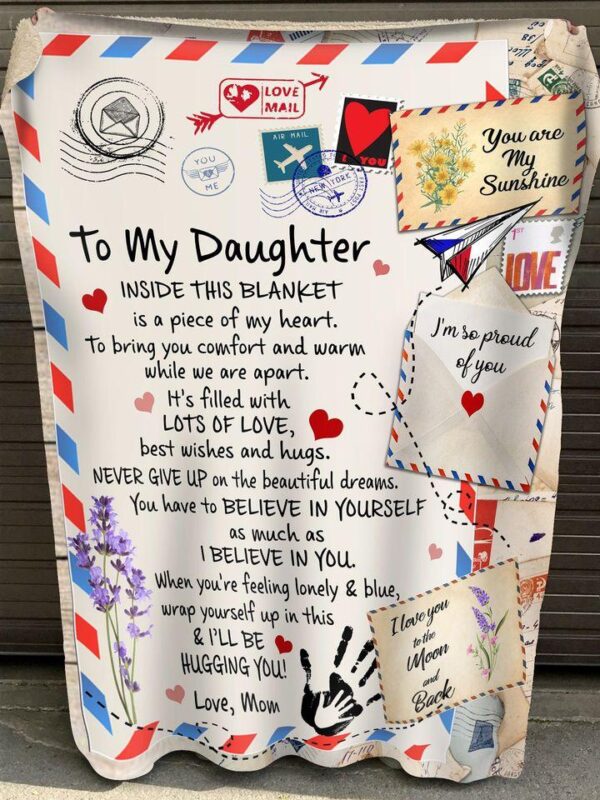 LOVE
MAIL
AIR MAIL
YOU
ME
NEW YORK
I YOU
You are
My
Sunshine
1ST
LOVE
To My Daughter
INSIDE THIS BLANKET
is a piece of my heart.
To bring you comfort and warm
while we are apart.
It's filled with
LOTS OF LOVE,
best wishes and hugs.
NEVER GIVE UP on the beautiful dreams.
You have to BELIEVE IN YOURSELF
as much as
I BELIEVE IN YOU.
When you're feeling lonely & blue,
wrap yourself up in this
& I'LL BE
HUGGING YOU!
Love, Mom
I'm so proud
of you
I love you
to the
Moon
and
Back